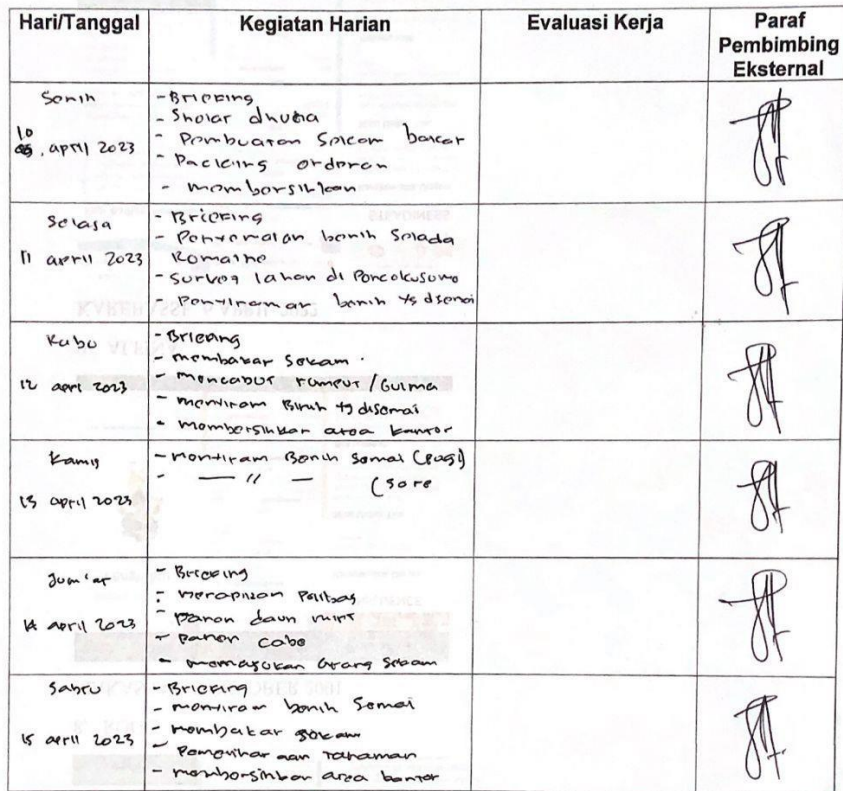 Hari/Tanggal
Kegiatan Harian
Evaluasi Kerja
Paraf
Pembimbing
Eksternal
Senin
10
april 2023
- Briefing
- Sholat dhuha
- Pembuatan Sekam bakar
- Packing orderan
- membersihkan
Selasa
11 april 2023
- Briefing
- Penyemaian benih Selada
Romaine
- Survey lahan di Poncokusumo
- Penyiraman benih yg disemai
Rabu
12 april 2023
- Briefing
- membakar sekam
- mencabut rumput / Gulma
- menyiram Binih yg disemai
- membersihkan area kantor
Kamis
13 april 2023
- menyiram Benih Semai (pagi)
- — 〃 — (sore
Jum'at
14 april 2023
- Briefing
- merapikan Polibag
- Panen daun mint
- Panen Cabe
- memasukan Arang Sekam
Sabtu
15 april 2023
- Briefing
- menyiram benih Semai
- membakar sekam
- Pemeliharaan Tanaman
- membersihkan area kantor